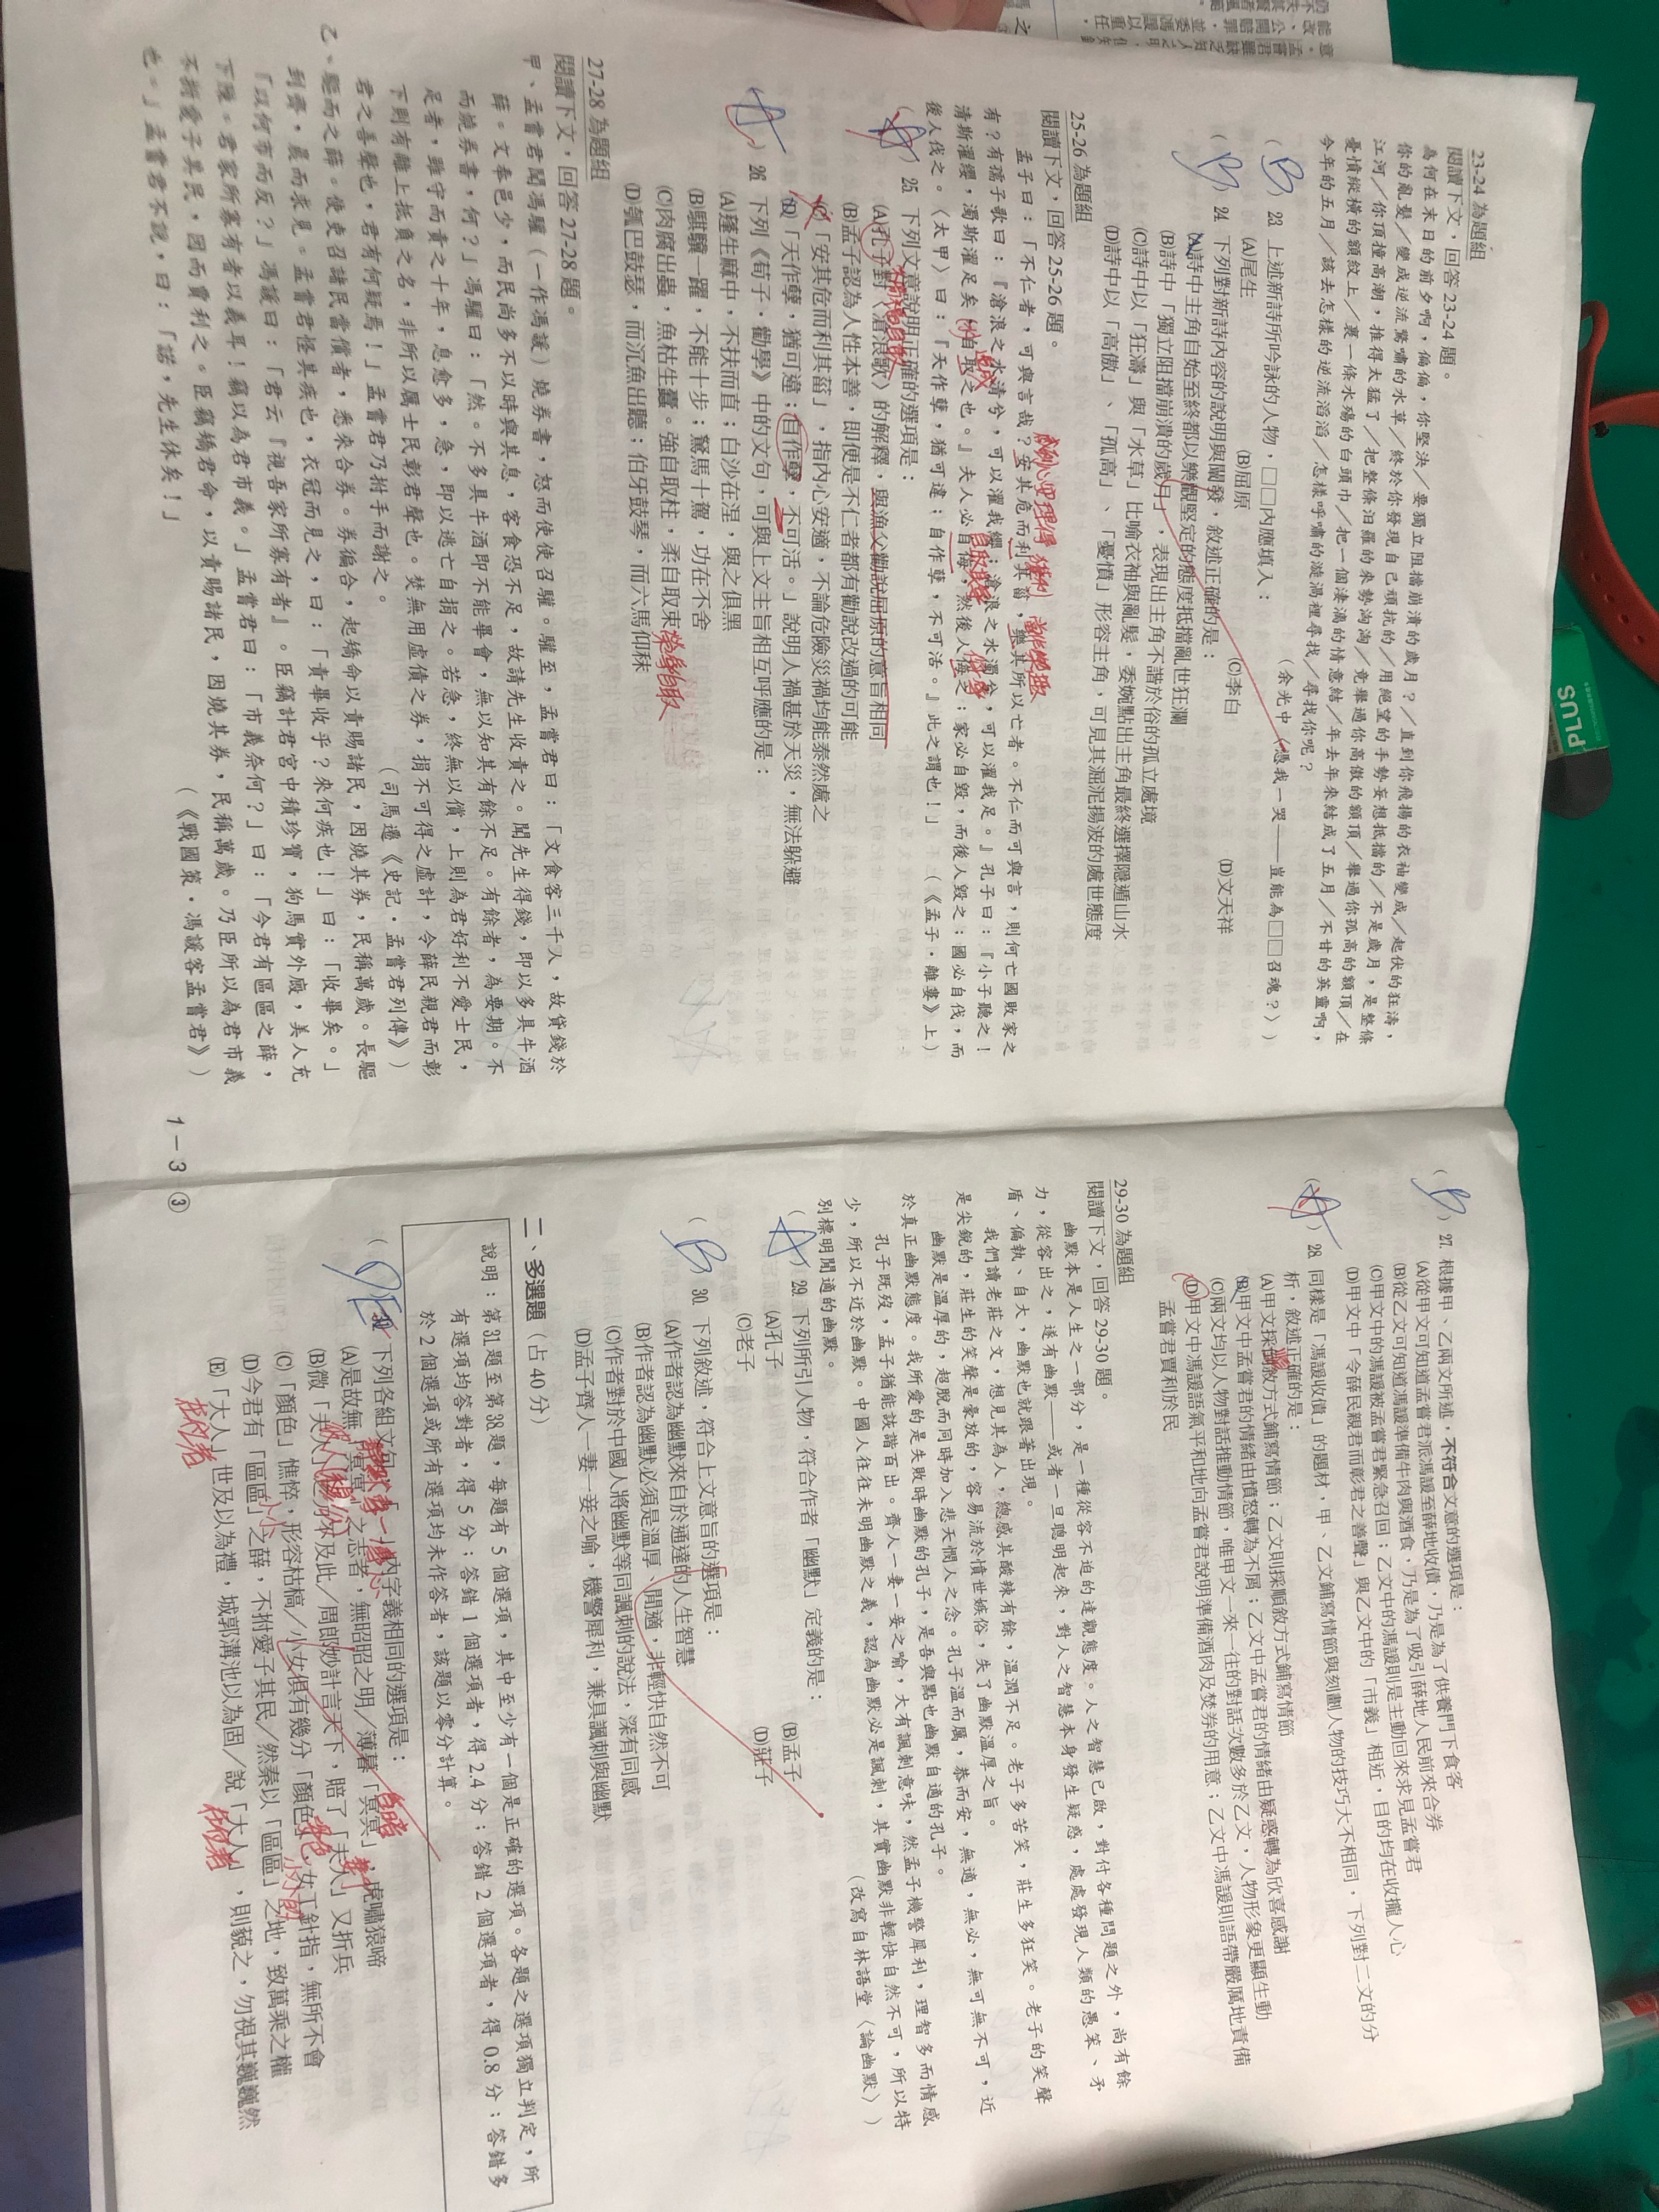 23-24 為題組
閱讀下文，回答 23-24 題。
為何在末日的前夕啊，偏偏，你堅決／要獨立阻擋崩潰的歲月？／直到你飛揚的衣袖變成／起伏的狂濤，
你的亂髮／變成逆流驚嘯的水草／終於你發現自己頑抗的／用絕望的手勢妄想抵擋的／不是歲月，是整條
江河／你頂撞高潮，推得太猛了／把整條汨羅的來勢洶洶／竟舉過你高傲的額頂／舉過你孤高的額頂／在
憂憤縱橫的額紋上／裹一條水殤的白頭巾／把一個淒漓的情意結／年去年來結成了五月／不甘的英靈啊，
今年的五月／該去怎樣的逆流滔滔／怎樣呼嘯的漩渦裡尋找／尋找你呢？
（余光中〈憑我一哭——豈能為□□召魂？〉）
（B）23. 上述新詩所吟詠的人物，□□內應填入：
(A)尾生 (B)屈原 (C)李白 (D)文天祥
（B）24. 下列對新詩內容的說明與闡發，敘述正確的是：
(A)詩中主角自始至終都以樂觀堅定的態度抵擋亂世狂瀾
(B)詩中「獨立阻擋崩潰的歲月」，表現出主角不諧於俗的孤立處境
(C)詩中以「狂濤」與「水草」比喻衣袖與亂髮，委婉點出主角最終選擇隱遁山水
(D)詩中以「高傲」、「孤高」、「憂憤」形容主角，可見其淈泥揚波的處世態度
25-26 為題組
閱讀下文，回答 25-26 題。
孟子曰：「不仁者，可與言哉？安其危而利其菑，樂其所以亡者。不仁而可與言，則何亡國敗家之
有？有孺子歌曰：『滄浪之水清兮，可以濯我纓；滄浪之水濁兮，可以濯我足。』孔子曰：『小子聽之！
清斯濯纓，濁斯濯足矣，自取之也。』夫人必自侮，然後人侮之；家必自毀，而後人毀之；國必自伐，而
後人伐之。〈太甲〉曰：『天作孽，猶可違；自作孽，不可活。』此之謂也！」（《孟子·離婁》上）
（A）25. 下列文章說明正確的選項是：
(A)孔子對〈滄浪歌〉的解釋，與漁父勸說屈原的意旨相同
(B)孟子認為人性本善，即便是不仁者都有勸說改過的可能
(C)「安其危而利其菑」，指內心安適，不論危險災禍均能泰然處之
(D)「天作孽，猶可違；自作孽，不可活。」說明人禍甚於天災，無法躲避
（A）26. 下列《荀子·勸學》中的文句，可與上文主旨相互呼應的是：
(A)蓬生麻中，不扶而直；白沙在涅，與之俱黑
(B)騏驥一躍，不能十步；駑馬十駕，功在不舍
(C)肉腐出蟲，魚枯生蠹。強自取柱，柔自取束
(D)瓠巴鼓瑟，而沉魚出聽；伯牙鼓琴，而六馬仰秣
27-28 為題組
閱讀下文，回答 27-28 題。
甲、孟嘗君聞馮驩（一作馮諼）燒券書，怒而使使召驩。驩至，孟嘗君曰：「文食客三千人，故貸錢於
薛。文奉邑少，而民尚多不以時與其息，客食恐不足，故請先生收責之。聞先生得錢，即以多具牛酒
而燒券書，何？」馮驩曰：「然。不多具牛酒即不能畢會，無以知其有餘不足。有餘者，為要期。不
足者，雖守而責之十年，息愈多，急，即以逃亡自捐之。若急，終無以償，上則為君好利不愛士民，
下則有離上抵負之名，非所以厲士民彰君聲也。焚無用虛債之券，捐不可得之虛計，令薛民親君而彰
君之善聲也，君有何疑焉！」孟嘗君乃拊手而謝之。（司馬遷《史記·孟嘗君列傳》）
乙、驅而之薛。使吏召諸民當償者，悉來合券。券徧合，起矯命以責賜諸民，因燒其券，民稱萬歲。長驅
到齊，晨而求見。孟嘗君怪其疾也，衣冠而見之，曰：「責畢收乎？來何疾也！」曰：「收畢矣。」
「以何市而反？」馮諼曰：「君云『視吾家所寡有者』。臣竊計君宮中積珍寶，狗馬實外廄，美人充
下陳。君家所寡有者以義耳！竊以為君市義。」孟嘗君曰：「市義奈何？」曰：「今君有區區之薛，
不拊愛子其民，因而賈利之。臣竊矯君命，以責賜諸民，因燒其券，民稱萬歲。乃臣所以為君市義
也。」孟嘗君不說，曰：「諾，先生休矣！」（《戰國策·馮諼客孟嘗君》）
1－3 ③
（B）27. 根據甲、乙兩文所述，不符合文意的選項是：
(A)從甲文可知道孟嘗君派馮諼至薛地收債，乃是為了供養門下食客
(B)從乙文可知道馮諼準備牛肉與酒食，乃是為了吸引薛地人民前來合券
(C)甲文中的馮諼被孟嘗君緊急召回；乙文中的馮諼則是主動回來求見孟嘗君
(D)甲文中「令薛民親君而彰君之善聲」與乙文中的「市義」相近，目的均在收攏人心
（A）28. 同樣是「馮諼收債」的題材，甲、乙文鋪寫情節與刻劃人物的技巧大不相同，下列對二文的分
析，敘述正確的是：
(A)甲文採倒敘方式鋪寫情節；乙文則採順敘方式鋪寫情節
(B)甲文中孟嘗君的情緒由憤怒轉為不屑；乙文中孟嘗君的情緒由疑惑轉為欣喜感謝
(C)兩文均以人物對話推動情節，唯甲文一來一往的對話次數多於乙文，人物形象更顯生動
(D)甲文中馮諼語氣平和地向孟嘗君說明準備酒肉及焚券的用意；乙文中馮諼則語帶嚴厲地責備
孟嘗君賈利於民
29-30 為題組
閱讀下文，回答 29-30 題。
幽默本是人生之一部分，是一種從容不迫的達觀態度。人之智慧已啟，對付各種問題之外，尚有餘
力，從容出之，遂有幽默——或者一旦聰明起來，對人之智慧本身發生疑惑，處處發現人類的愚笨、矛
盾、偏執、自大，幽默也就跟著出現。
我們讀老莊之文，想見其為人，總感其酸辣有餘，溫潤不足。老子多苦笑，莊生多狂笑。老子的笑聲
是尖銳的，莊生的笑聲是豪放的，容易流於憤世嫉俗，失了幽默溫厚之旨。
幽默是溫厚的，超脫而同時加入悲天憫人之念。孔子溫而厲，恭而安，無適，無必，無可無不可，近
於真正幽默態度。我所愛的是失敗時幽默的孔子，是吾與點也幽默自適的孔子。
孔子既歿，孟子猶能詼諧百出。齊人一妻一妾之喻，大有諷刺意味，然孟子機警犀利，理智多而情感
少，所以不近於幽默。中國人往往未明幽默之義，認為幽默必是諷刺，其實幽默非輕快自然不可，所以特
別標明閒適的幽默。（改寫自林語堂〈論幽默〉）
（A）29. 下列所引人物，符合作者「幽默」定義的是：
(A)孔子 (B)孟子
(C)老子 (D)莊子
（B）30. 下列敘述，符合上文意旨的選項是：
(A)作者認為幽默來自於通達的人生智慧
(B)作者認為幽默必須是溫厚、閒適，非輕快自然不可
(C)作者對於中國人將幽默等同諷刺的說法，深有同感
(D)孟子齊人一妻一妾之喻，機警犀利，兼具諷刺與幽默
二、多選題（占 40 分）
說明：第31題至第38題，每題有 5 個選項，其中至少有一個是正確的選項。各題之選項獨立判定，所
有選項均答對者，得 5 分；答錯 1 個選項者，得 2.4 分；答錯 2 個選項者，得 0.8 分；答錯多
於 2 個選項或所有選項均未作答者，該題以零分計算。
（DE）31. 下列各組文句「」內字義相同的選項是：
(A)是故無「冥冥」之志者，無昭昭之明／薄暮「冥冥」，虎嘯猿啼
(B)微「夫人」之力不及此／周郎妙計言天下，賠了「夫人」又折兵
(C)「顏色」憔悴，形容枯槁／小女俱有幾分「顏色」，女工針指，無所不會
(D)今君有「區區」之薛，不拊愛子其民／然秦以「區區」之地，致萬乘之權
(E)「大人」世及以為禮，城郭溝池以為固／說「大人」，則藐之，勿視其巍巍然
PLUS